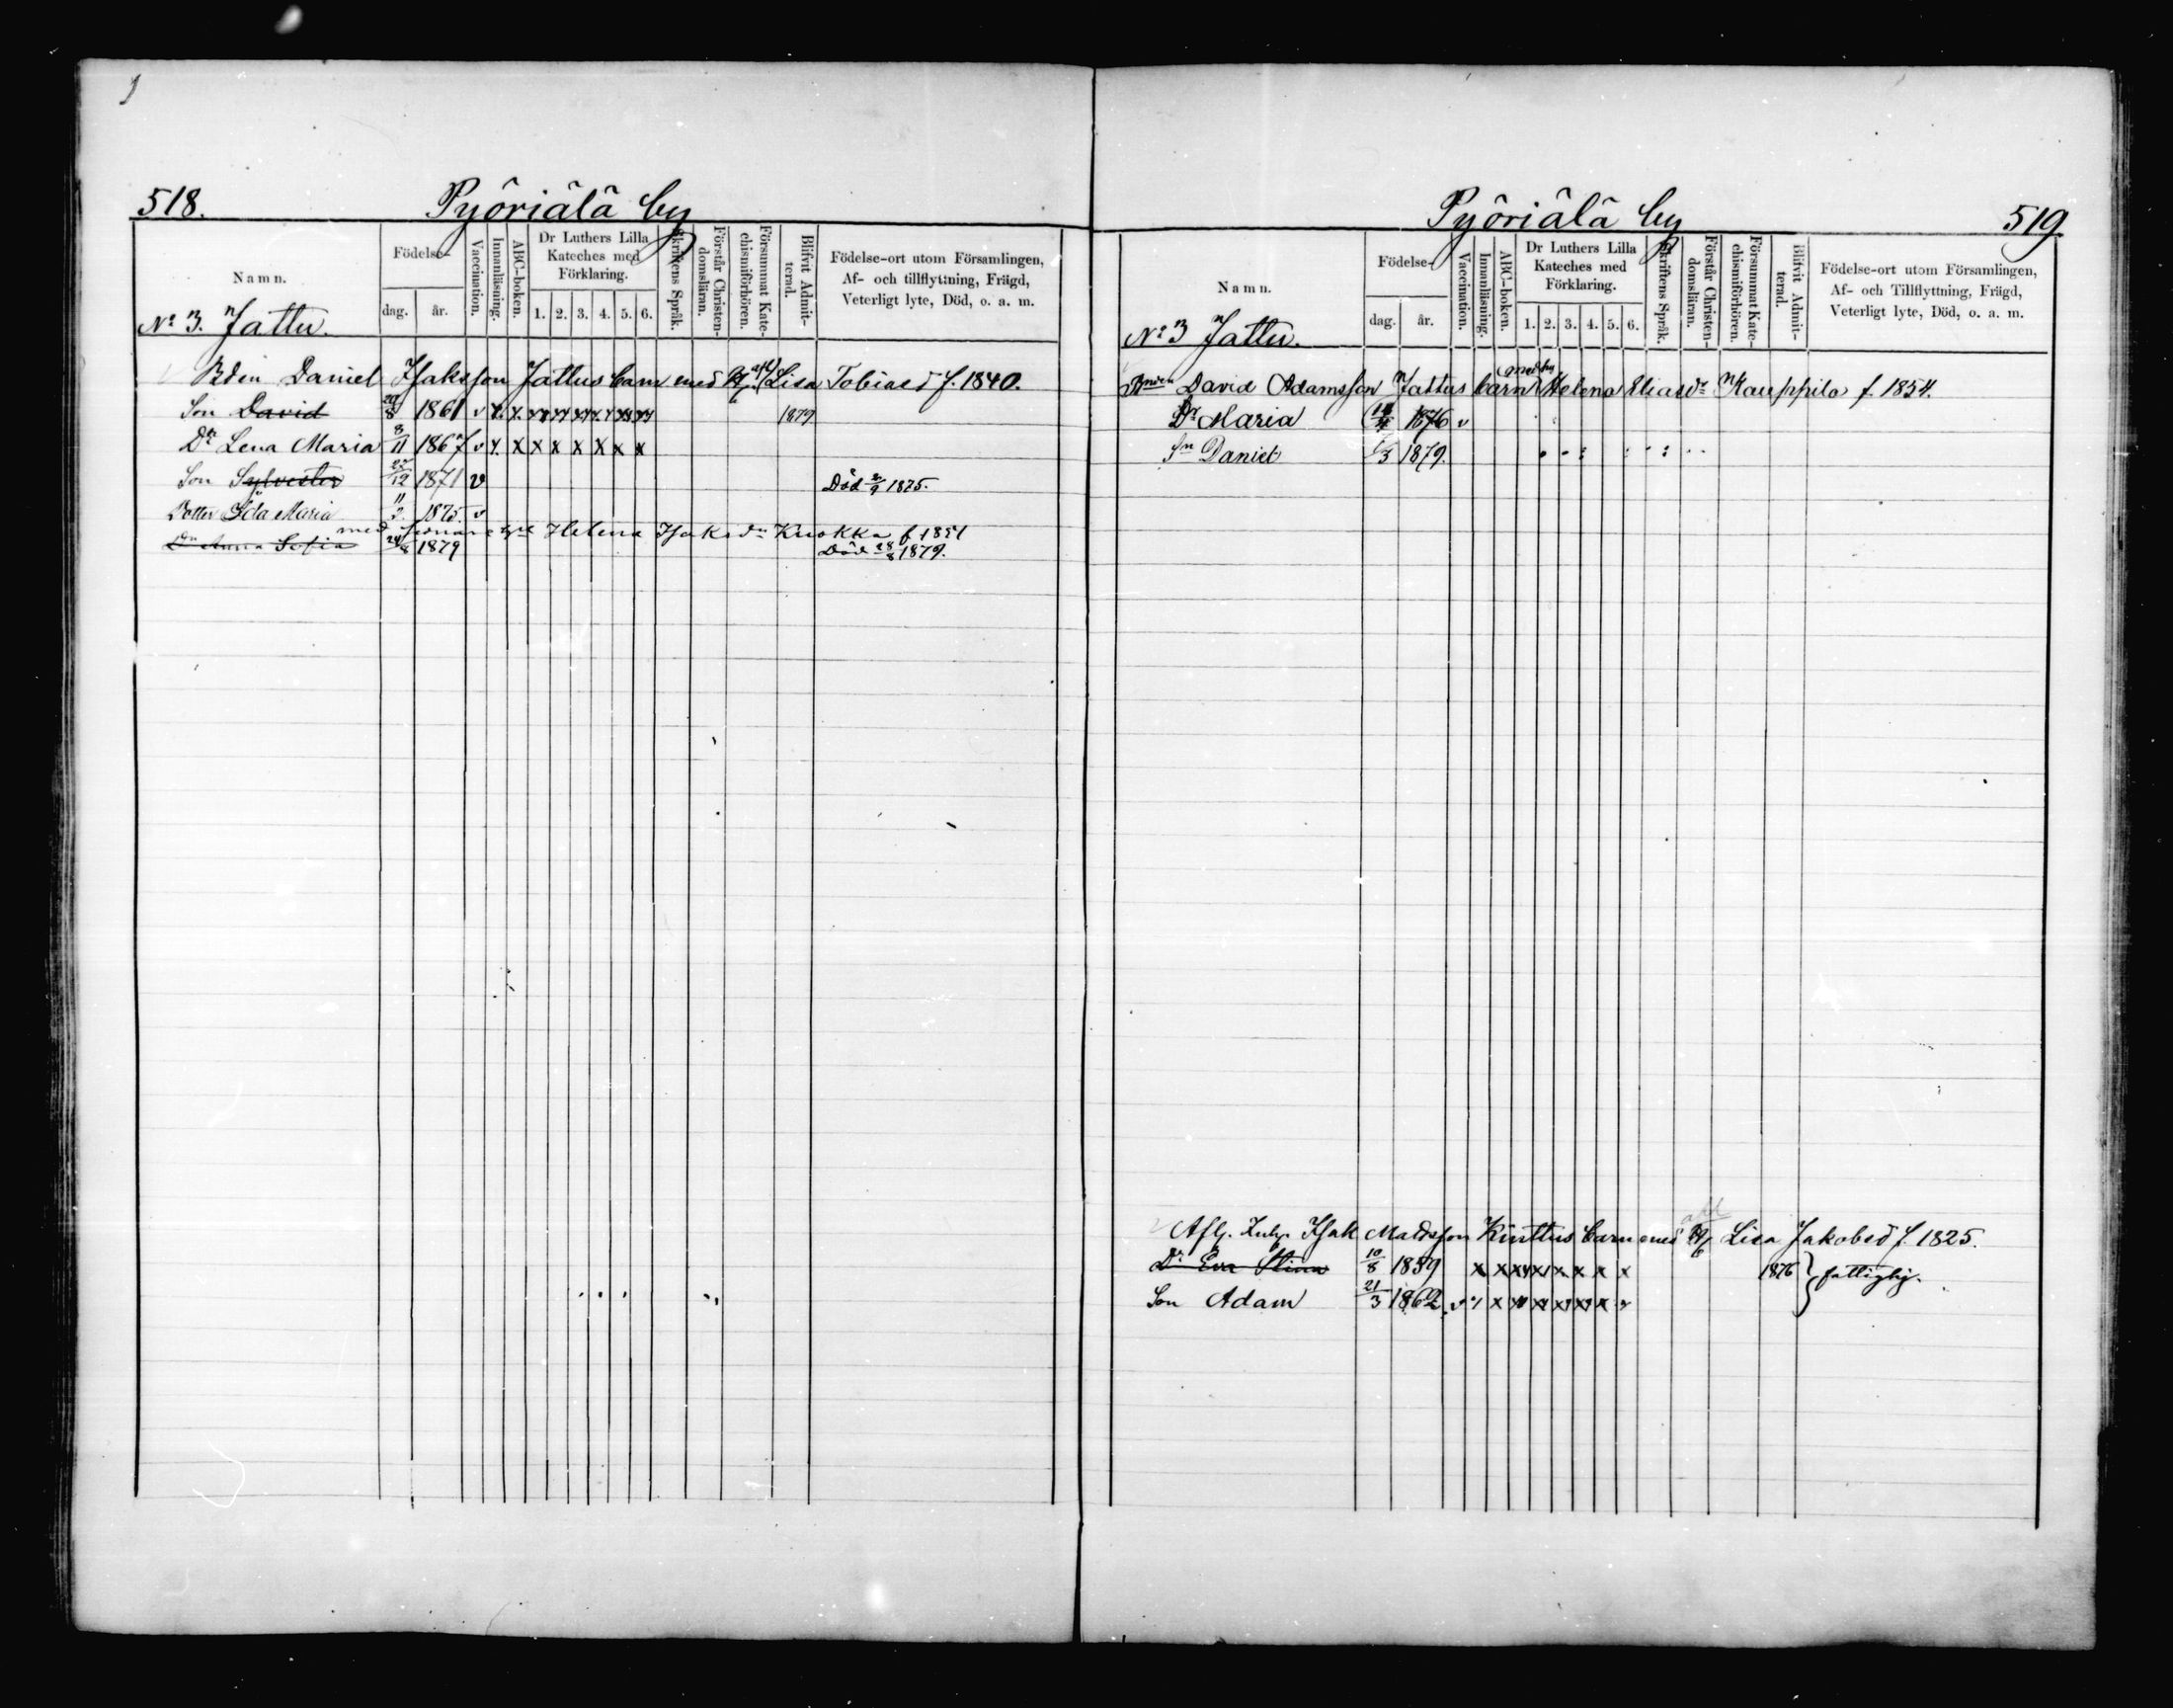 518.
Pyöriälä by
Namn.
Födelse-
dag.
år.
Vaccination.
Innanläsning.
ABC-boken.
Dr Luthers Lilla
Kateches med
Förklaring.
1. 2. 3. 4. 5. 6.
Skriftens Språk.
Förstår Christen-
domsläran.
Försummat Kate-
chismiförhören.
Blifvit Admit-
terad.
Födelse-ort utom Församlingen,
Af- och tillflyttning, Frägd,
Veterligt lyte, Död, o. a. m.
No 3. Jattu.
Bden Daniel Isaksson Jattus barn med Lisa Tobiasd f. 1840.
Son David 20/8 1861 v x x 1879
Dr Lena Maria 8/11 1867 v x x x x x x x x
Son Sylvester 22/12 1871 v Död 2/9 1875.
Dotter Ida Maria 11/2 1875. v
med sednare Helena Isaksdr Knokka f 1851
Dr Anna Sofia 24/8 1879 Död 28/8 1879.
Pyöriälä by
519
Namn.
Födelse-
dag.
år.
Vaccination.
Innanläsning.
ABC-boken.
Dr Luthers Lilla
Kateches med
Förklaring.
1. 2. 3. 4. 5. 6.
Skriftens Språk.
Förstår Christen-
domsläran.
Försummat Kate-
chismiförhören.
Blifvit Admit-
terad.
Födelse-ort utom Församlingen,
Af- och Tillflyttning, Frägd,
Veterligt lyte, Död, o. a. m.
No 3 Jattu.
Bonden David Adamsson Jattus barn med Helena Eliasdr Kauppila f. 1854.
Dr Maria 1876 v
Sn Daniel 1/3 1879.
Afl. Inh. Isak Matdsson Kinttus barn med Lisa Jakobsd f. 1825.
Dr Eva Stina 10/8 1859 x x x x x x x x 1876 } fattighj.
Son Adam 21/3 1862. v x x x x x x